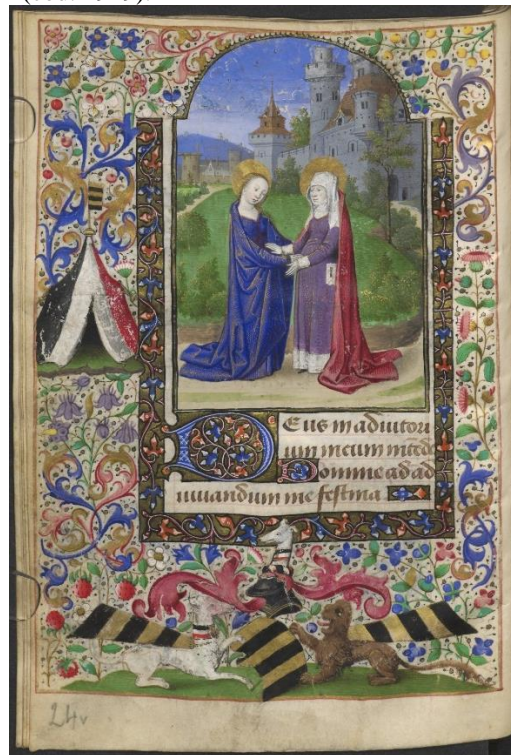 Deus in adiutori
um meum intēde
Domine ad ad
iuuandum me festina
24v